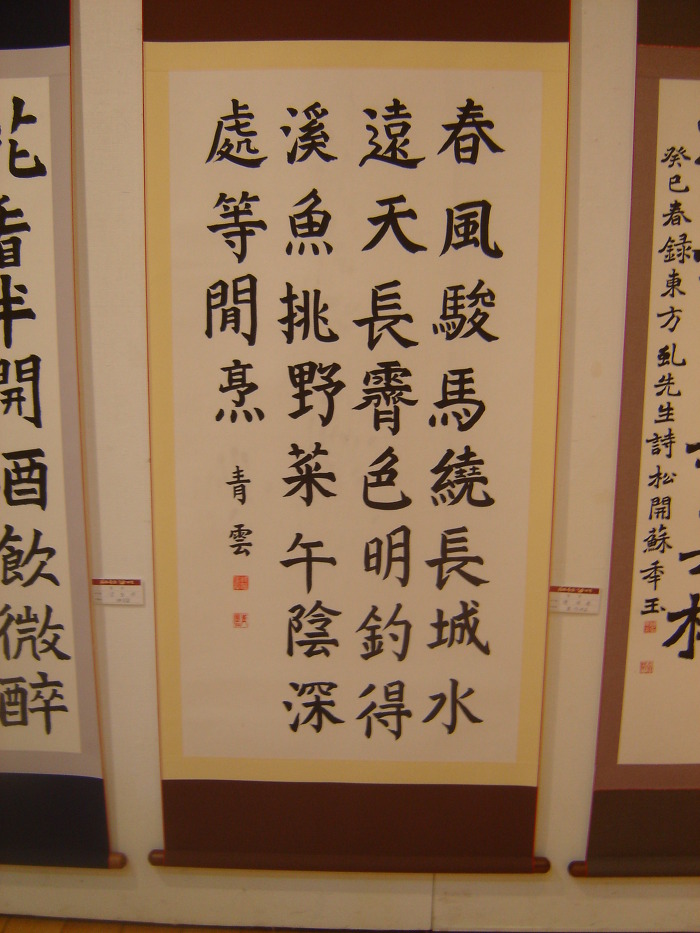 癸巳春録東方虬先生詩松開蘇秊玉
春風駿馬繞長城水
遠天長霽色明釣得
溪魚挑野菜午陰深
處等閒烹
青雲
花看半開酒飲微醉